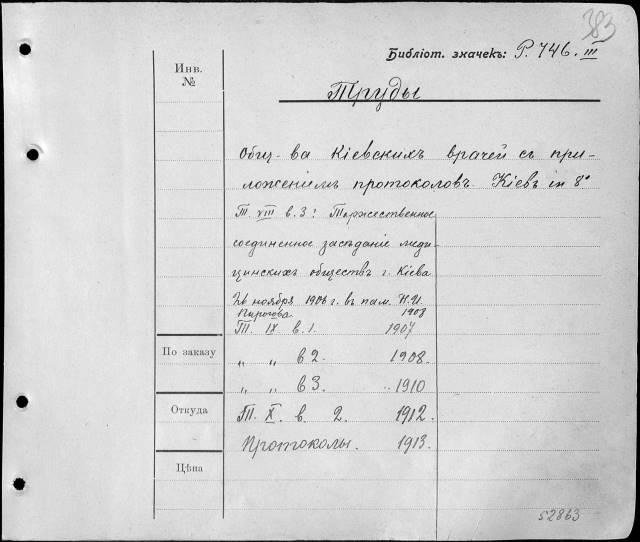 383
Библіот. значекъ: Р. 746. III
Инв.
№
Труды
Общ-ва Кіевскихъ врачей съ при-
ложеніемъ протоколовъ. Кіевъ in 8°
Т. VIII в. 3: Торжественное
соединенное засѣданіе меди-
цинскихъ обществъ г. Кіева
26 ноября 1906 г. въ пам. Н.И.
Пирогова. 1908
Т. IX в. 1. 1907
По заказу
„ „ в 2. 1908.
„ „ в 3. „ 1910
Откуда
Т. X. в. 2. 1912.
Протоколы. 1913.
Цѣна
52863